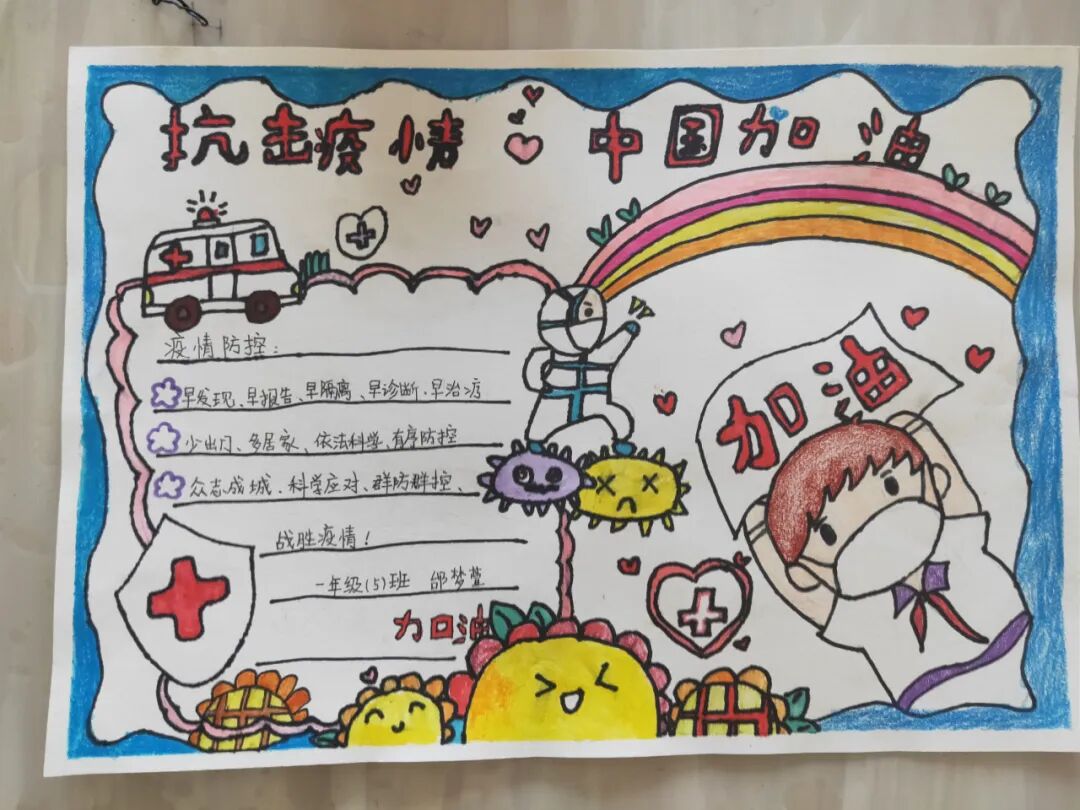 抗击疫情 中国加油
疫情防控:
早发现、早报告、早隔离、早诊断、早治疗
少出门、多居家、依法科学、有序防控
众志成城、科学应对、群防群控、
战胜疫情!
一年级(5)班 邰梦萱
加油
加油